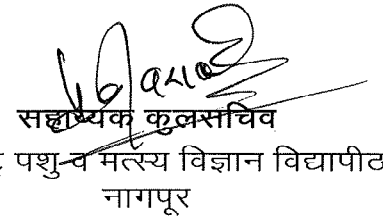 सहाय्यक कुलसचिव
पशु व मत्स्य विज्ञान विद्यापीठ
नागपूर